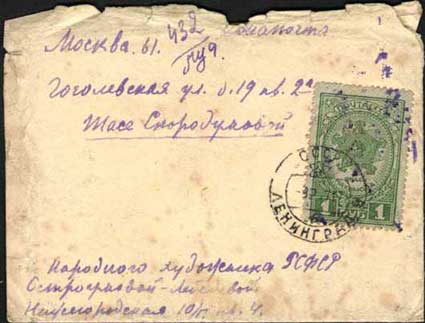 Москва. 61.
432
Гоголевская ул. д. 19 кв. 22
Тасе Скородумовой
ПОЧТА
1 1
ЛЕНИНГРАД
Народного художника РСФСР
Остроумовой-Лебедевой
Нижегородская 10/ кв. 4.